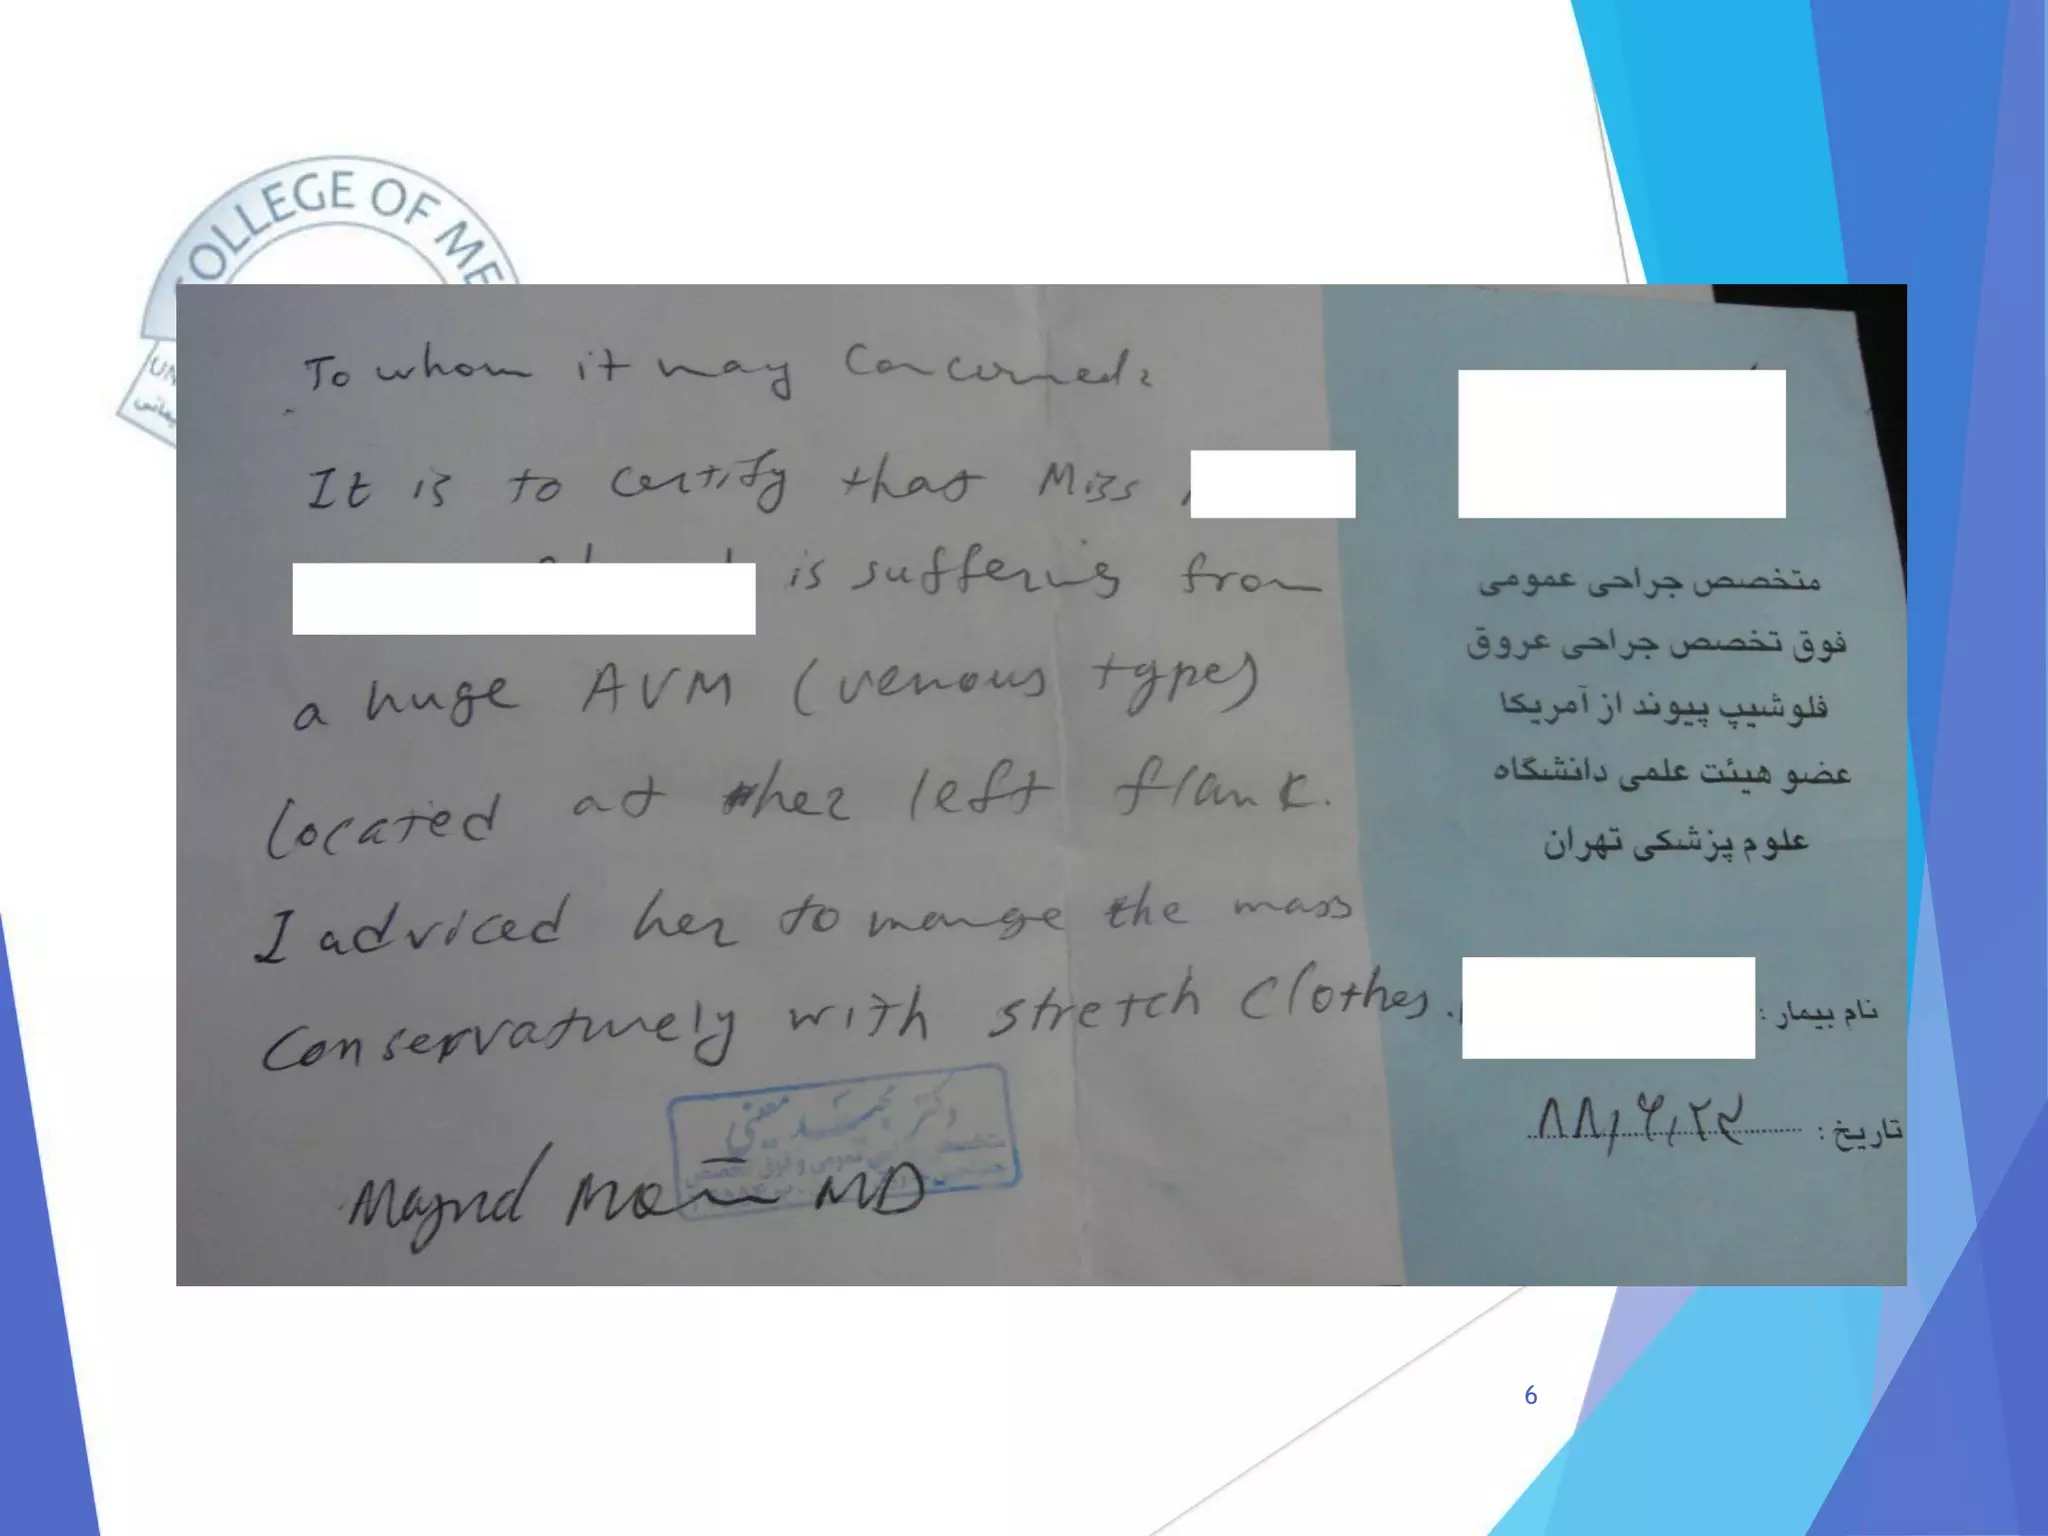 COLLEGE OF ME
UN
To whom it may Concerned:
It is to certify that Miss
is suffering from
a huge AVM (venous type)
located at her left flank.
I adviced her to mange the mass
Conservatively with stretch Clothes.
دکتر مجید معینی
Majid Moini MD
متخصص جراحی عمومی
فوق تخصص جراحی عروق
فلوشیپ پیوند از آمریکا
عضو هیئت علمی دانشگاه
علوم پزشکی تهران
نام بیمار :
تاریخ :
6